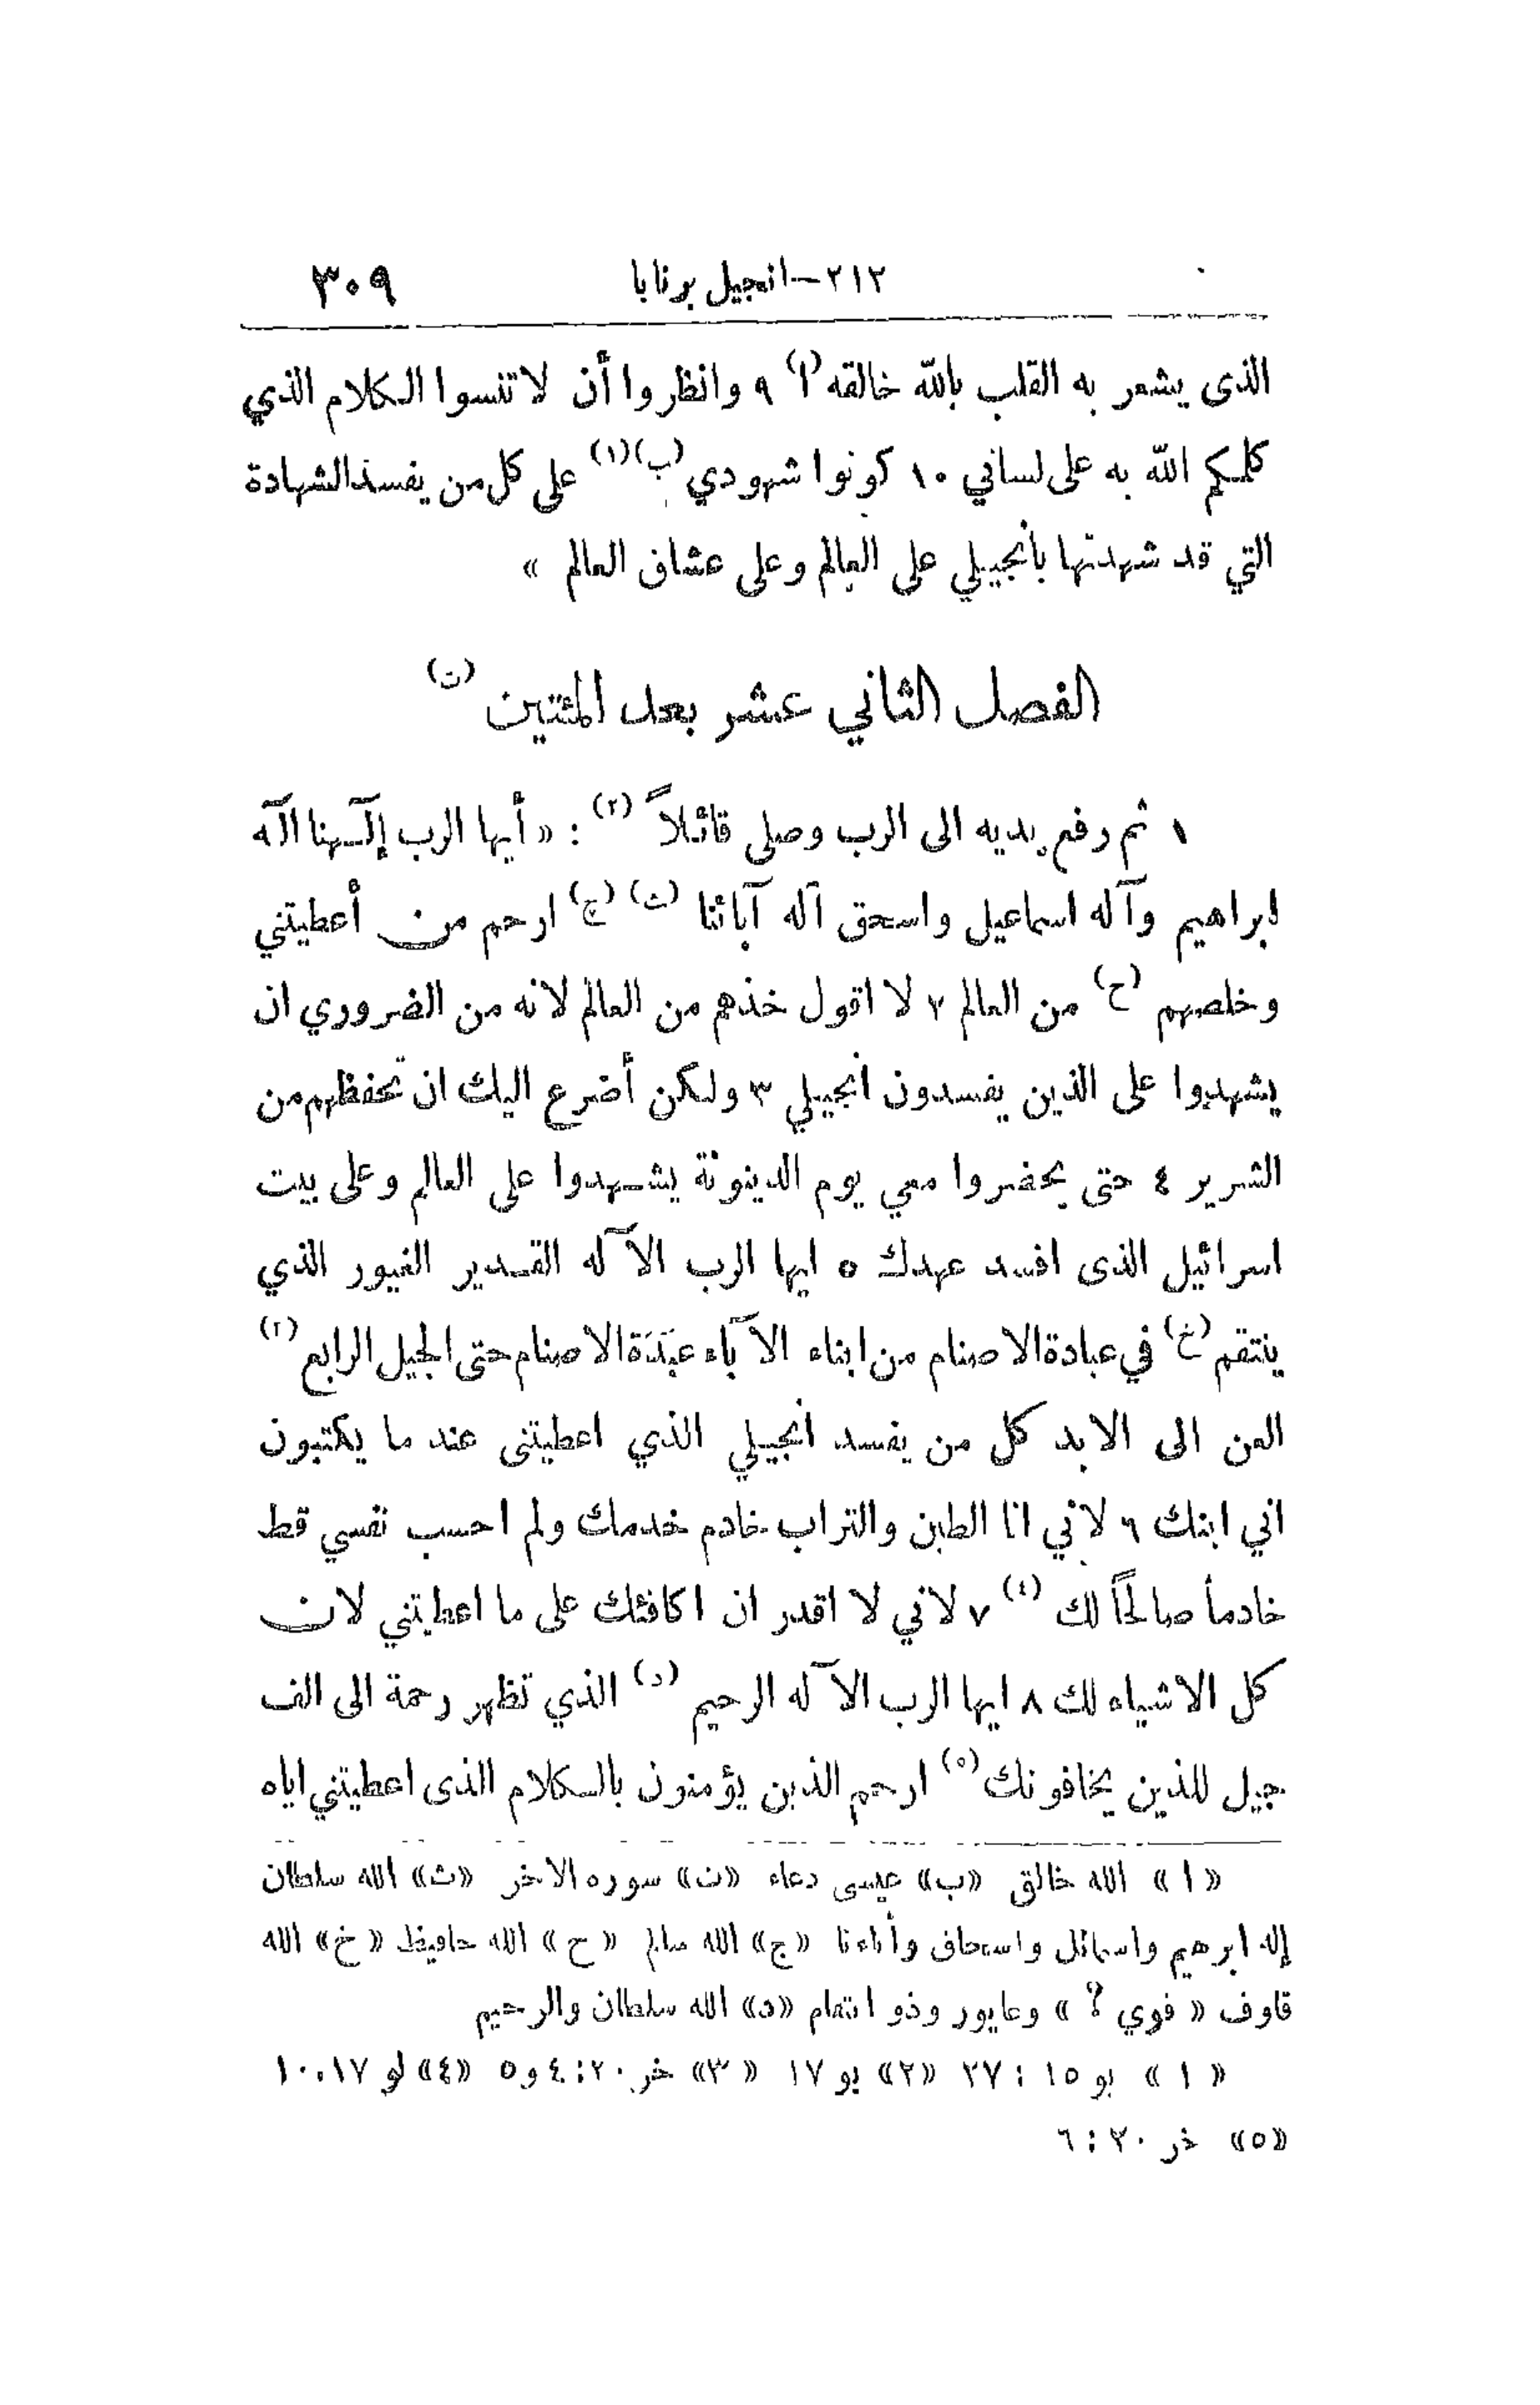 ٢١٢—انجيل برنابا ٣٠٩
الذى يشعر به القلب بالله خالقه (ا) ٩ وانظروا أن لا تنسوا الكلام الذي
كلمكم الله به على لساني ١٠ كونوا شهودي (ب)(١) على كل من يفسد الشهادة
التي قد شهدتها بانجيلي على العالم وعلى عشاق العالم »
الفصل الثاني عشر بعد المئتين (ت)
١ ثم رفع يديه الى الرب وصلى قائلاً (٢) : « أيها الرب إلٓهنا الٓه
ابراهيم وآله اسماعيل واسحق آله آبائنا (ث) (ج) ارحم من أعطيتني
وخلصهم (ح) من العالم ٢ لا اقول خذهم من العالم لانه من الضروري ان
يشهدوا على الذين يفسدون انجيلي ٣ ولكن أضرع اليك ان تحفظهم من
الشرير ٤ حتى يحضروا معي يوم الدينونة يشهدوا على العالم وعلى بيت
اسرائيل الذى افسد عهدك ٥ ايها الرب الآله القدير الغيور الذي
ينتقم (خ) في عبادة الاصنام من ابناء الآباء عبَدَة الاصنام حتى الجيل الرابع (٣)
العن الى الابد كل من يفسد انجيلي الذي اعطيتنى عند ما يكتبون
اني ابنك ٦ لاني انا الطين والتراب خادم خدمك ولم احسب نفسي قط
خادماً صالحاً لك (٤) ٧ لاني لا اقدر ان اكافئك على ما اعطيتني لان
كل الاشياء لك ٨ ايها الرب الآله الرحيم (د) الذي تظهر رحمة الى الف
جيل للذين يخافونك (٥) ارحم الذين يؤمنون بالكلام الذى اعطيتني اياه
« ا » الله خالق «ب» عيسى دعاء «ت» سوره الاخر «ث» الله سلطان
إله ابرهيم واسمائل واسحاق وأباءنا «ج» الله سالم « ح » الله حافيظ « خ » الله
قاوف « قوي ؟ » وعايور وذو انتقام «د» الله سلطان والرحيم
« ١ » يو ١٥ : ٢٧ «٢» يو ١٧ « ٣» خر ٢٠ : ٤ و ٥ «٤» لو ١٧ ، ١٠
«٥» خر ٢٠ : ٦